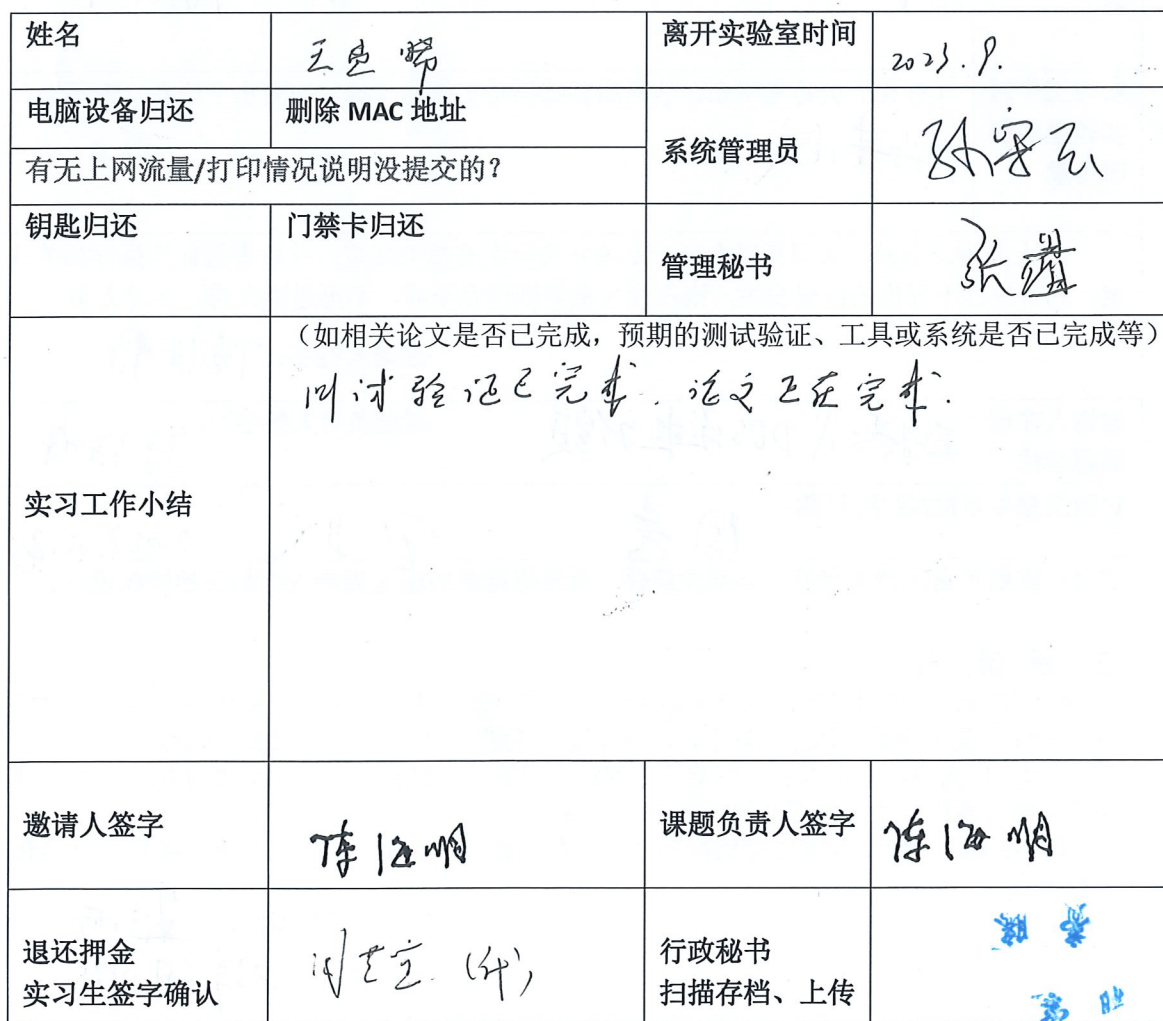 姓名 离开实验室时间 2023.9.
电脑设备归还 删除 MAC 地址
系统管理员
有无上网流量/打印情况说明没提交的？
钥匙归还 门禁卡归还
管理秘书 张
（如相关论文是否已完成，预期的测试验证、工具或系统是否已完成等）
测试验证已完成. 论文正在完成.
实习工作小结
邀请人签字 陈海明 课题负责人签字 陈海明
退还押金 行政秘书
实习生签字确认 (代) 扫描存档、上传